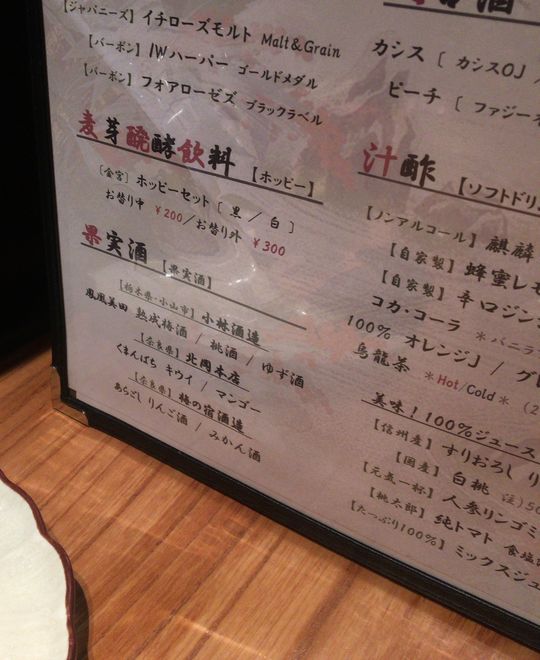 【ジャパニーズ】イチローズモルト Malt&Grain
【バーボン】IWハーパー ゴールドメダル
【バーボン】フォアローゼズ ブラックラベル
麦芽醗酵飲料【ホッピー】
［金宮］ホッピーセット［ 黒 / 白 ］
お替り中 ¥200/お替り外 ¥300
果実酒【果実酒】
【栃木県・小山市】小林酒造
鳳凰美田 熟成梅酒 / 桃酒 / ゆず酒
【奈良県】北岡本店
くまんばち キウイ / マンゴー
【奈良県】梅の宿酒造
あらごし りんご酒 / みかん酒
酒
カシス［ カシスOJ /
ピーチ［ ファジーネ
汁酢【ソフトドリ
【ノンアルコール】麒麟
【自家製】蜂蜜レモ
【自家製】辛口ジンジ
コカ・コーラ *バニラ
100% オレンジJ / グレ
烏龍茶 *Hot/Cold*
美味!100%ジュース
【信州産】すりおろし り
【国産】白桃 注)50
【元気一杯】人参リンゴミ
【桃太郎】純トマト 食塩
【たっぷり100%】ミックスジュ